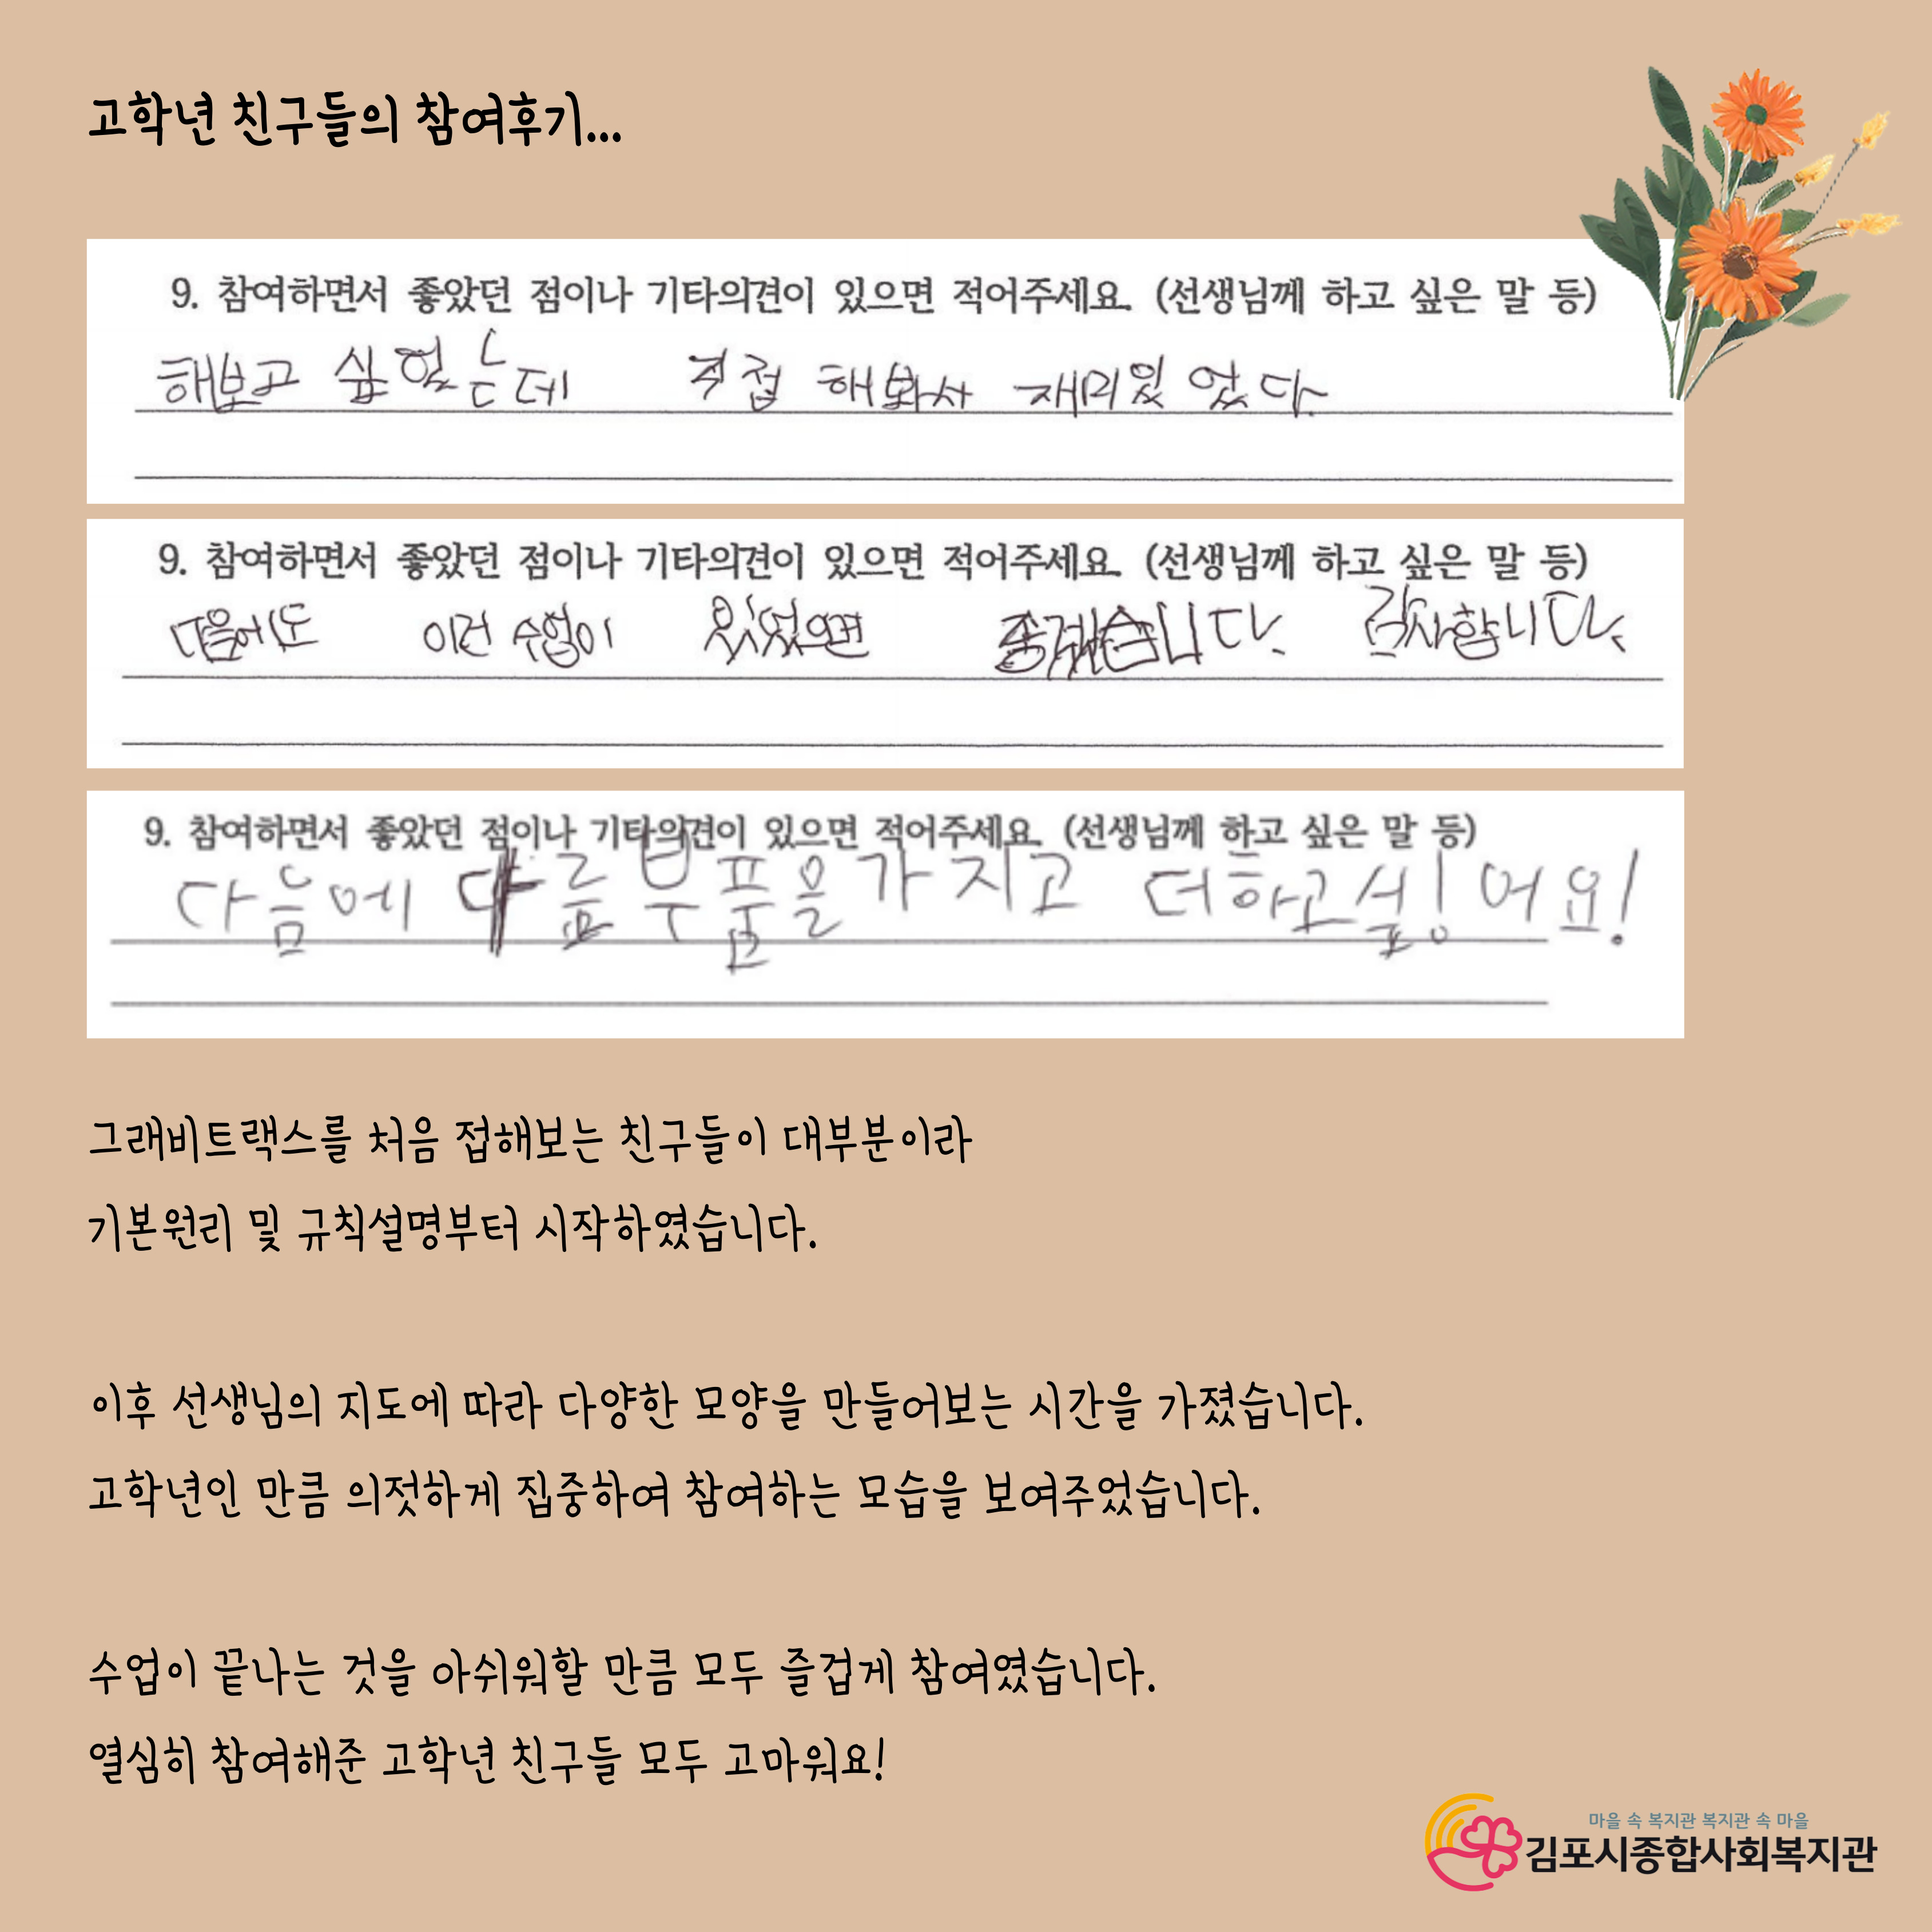 고학년 친구들의 참여후기...
9. 참여하면서 좋았던 점이나 기타의견이 있으면 적어주세요. (선생님께 하고 싶은 말 등)
해보고 싶었는데 직접 해봐서 재미있었다.
9. 참여하면서 좋았던 점이나 기타의견이 있으면 적어주세요. (선생님께 하고 싶은 말 등)
다음에도 이런 수업이 있었으면 좋겠습니다. 감사합니다.
9. 참여하면서 좋았던 점이나 기타의견이 있으면 적어주세요. (선생님께 하고 싶은 말 등)
다음에 다른 부품을 가지고 더하고 어요!
그래비트랙스를 처음 접해보는 친구들이 대부분이라
기본원리 및 규칙설명부터 시작하였습니다.
이후 선생님의 지도에 따라 다양한 모양을 만들어보는 시간을 가졌습니다.
고학년인 만큼 의젓하게 집중하여 참여하는 모습을 보여주었습니다.
수업이 끝나는 것을 아쉬워할 만큼 모두 즐겁게 참여였습니다.
열심히 참여해준 고학년 친구들 모두 고마워요!
마을 속 복지관 복지관 속 마을
김포시종합사회복지관